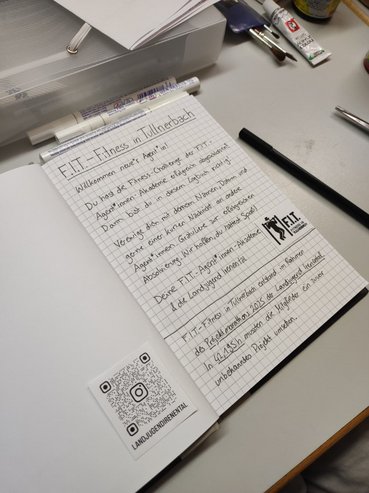 F.I.T.-Fitness in Tullnerbach
Willkommen neue*r Agent*in!
Du hast die Fitness-Challenge der F.I.T.-
Agent*innen-Akademie erfolgreich abgeschlossen!
Dann bist du in diesem Logbuch richtig!
Verewige dich mit deinem Namen, Datum und
gerne einer kurzen Nachricht an andere
Agent*innen. Gratulation zur erfolgreichen
Absolvierung. Wir hoffen, du hattest Spaß!
Deine F.I.T.-Agent*innen-Akademie
& die Landjugend Irenental
F.I.T.
F.I.T.-Fitness in Tullnerbach entstand im Rahmen
des Projektmarathons 2025 der Landjugend Irenental.
In 42,195h mussten die Mitglieder ein zuvor
unbekanntes Projekt umsetzen.
LANDJUGENDIRENENTAL